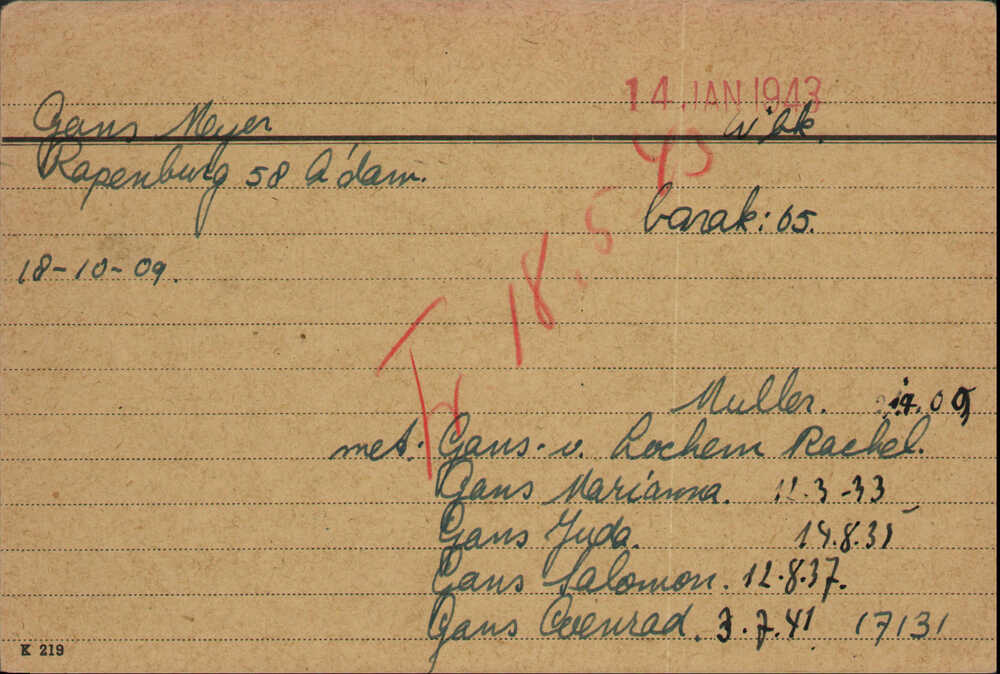 14 JAN 1943
Gans Meyer W'bk.
Rapenburg 58 A'dam.
barak: 65.
18-10-09.
Tr 18.5 43
Muller.
met: Gans- v. Lochem Rachel.
Gans Marianna. 12.3-33
Gans Juda. 14.8.35
Gans Salomon. 12.8.37.
Gans Coenrad. 3.7.41 17131
K 219